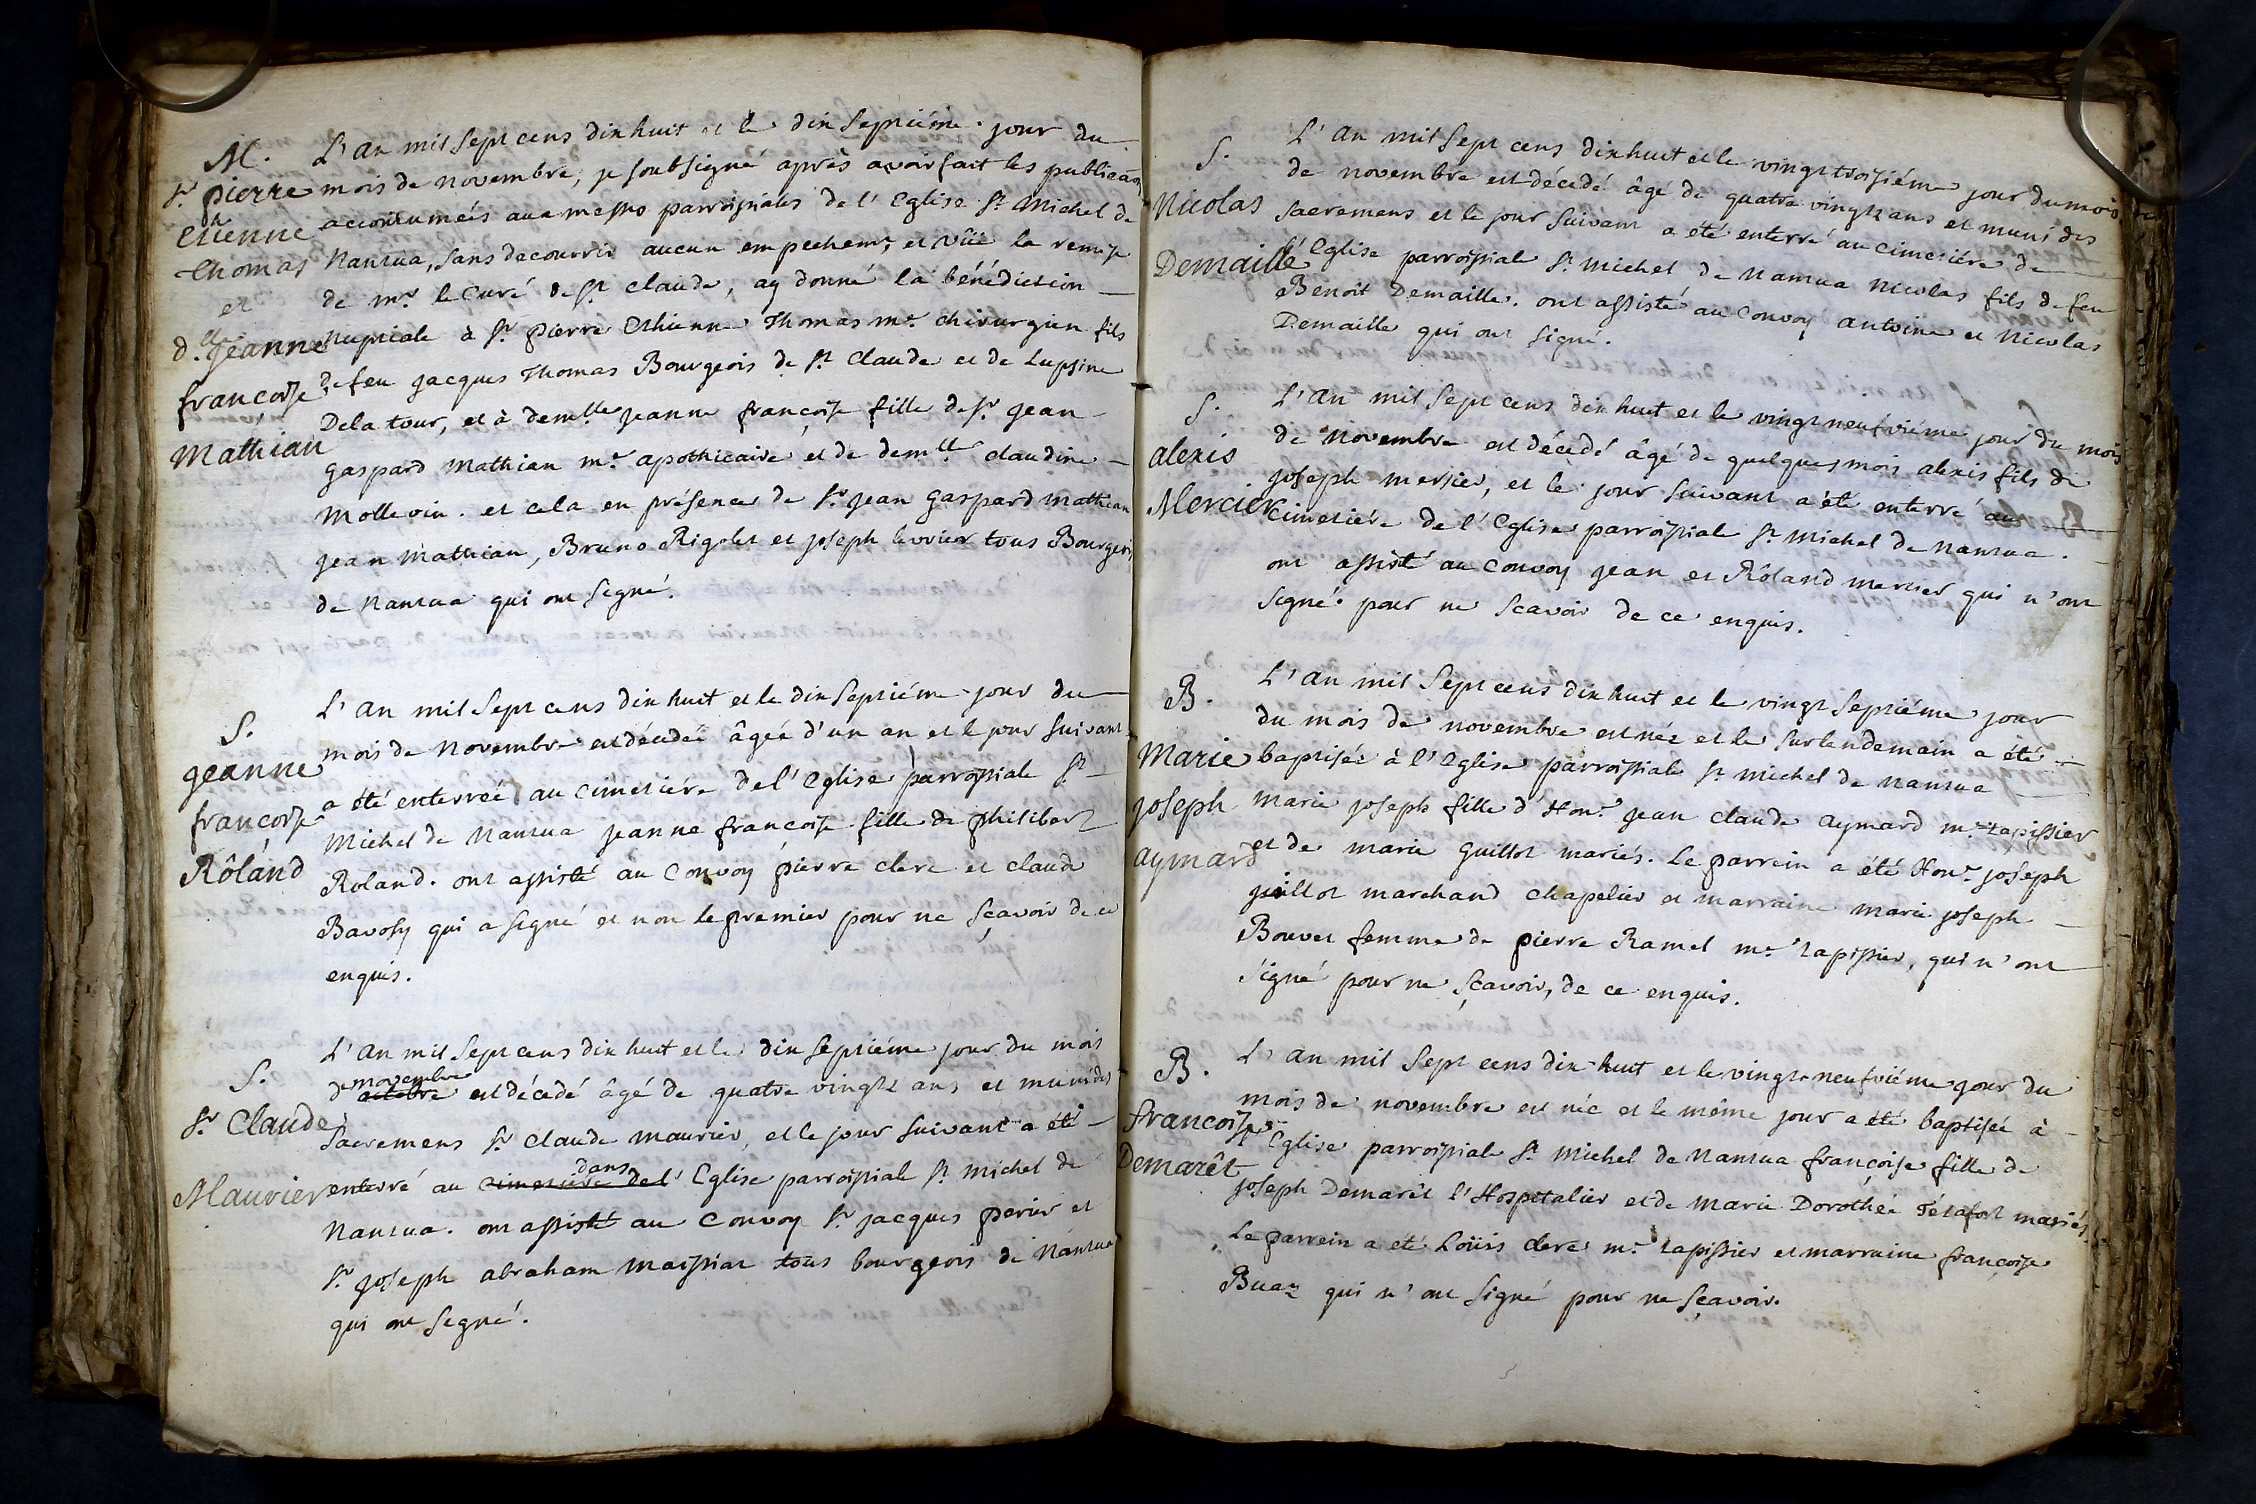 M.
Sr. pierre
Ethienne
Thomas
et
d.lle Jeanne
francoise
Mathian
L'an mil sept cens dix huit et le dix septiéme jour du
mois de novembre, je soubsigné après avoir fait les publicaõns
accoutumées aux messes parroissiales de l'Eglise St. Michel de
Nantua, sans decouvrir aucun empechemt. et vüe la remise
de mr. le Curé de St. Claude, ay donné la bénédiction
nuptiale à Sr. pierre Ethienne Thomas mre. chirurgien fils
de feu jacques Thomas Bourgeois de St. Claude et de Lupsine
Dela tour, et à demlle. Jeanne françoise fille de Sr. jean
gaspard Mathian mre. apothicaire et de demlle. claudine
Mollevin. et cela en présence de Sr. jean gaspard mathian
jean Mathian, Bruno Rigolet et joseph levrier tous Bourgeois
de Nantua qui ont signé.
S.
Jeanne
francoise
Rôland
L'an mil sept cens dix huit et le dix septiéme jour du
mois de Novembre est décédée âgée d'un an et le jour suivant
a été enterrée au cimetiére de l'Eglise parroissiale St.
Michel de Nantua Jeanne francoise fille de philibert
Roland. ont assisté au Convoy pierre clerc et claude
Bavosy qui a signé et non le premier pour ne scavoir de ce
enquis.
S.
Sr. Claude
Maurier
L'an mil sept cens dix huit et le dix septiéme jour du mois
novembre
d'octobre est décédé âgé de quatre vingts ans et muni des
sacremens Sr. Claude maurier, et le jour suivant a été
dans
enterré au cimetiére de l'Eglise parroissiale St. Michel de
Nantua. ont assisté au Convoy Sr. jacques perier et
Sr. joseph abraham maissiat tous bourgeois de Nantua
qui ont signé.
S.
Nicolas
Demaille
L'an mil sept cens dix huit et le vingt troisiéme jour du mois
de novembre est décédé âgé de quatre vingts ans et muni des
sacremens et le jour suivant a été enterré au cimetiére de
l'Eglise parroissiale St. Michel de Nantua Nicolas fils de feu
Benoit Demaille. ont assisté au Convoy antoine et Nicolas
Demaille qui ont signé.
S.
alexis
Mercier
L'an mil sept cens dix huit et le vingt neufviéme jour du mois
de Novembre est décédé âgé de quelques mois alexis fils de
joseph mersier, et le jour suivant a été enterré au
cimetiére de l'Eglise parroissiale St. Michel de Nantua.
ont assisté au Convoy jean et Rôland mercier qui n'ont
signé pour ne scavoir de ce enquis.
B.
Marie
joseph
aymard
L'an mil sept cens dix huit et le vingt septiéme jour
du mois de novembre est née et le surlendemain a été
baptisée à l'Eglise parroissiale St. Michel de Nantua
marie joseph fille d'Honr. jean claude aymard mre. tapissier
et de marie guillot mariés. Le parrein a été Honr. joséph
guillot marchand chapelier et marraine marie joseph
Bouvet femme de pierre Ramel mre. tapissier, qui n'ont
signé pour ne sçavoir, de ce enquis.
B.
francoise
Demarêt
L'an mil sept cens dix huit et le vingt neufviéme jour du
mois de novembre est née et le même jour a été baptisée à
l'Eglise parroissiale St. Michel de Nantua françoise fille de
joseph Demarêt l'Hospitalier et de Marie Dorothée Tétafort mariés.
Le parrein a été Loüis clerc mre. tapissier et marraine françoise
Buaz qui n'ont signé pour ne sçavoir.